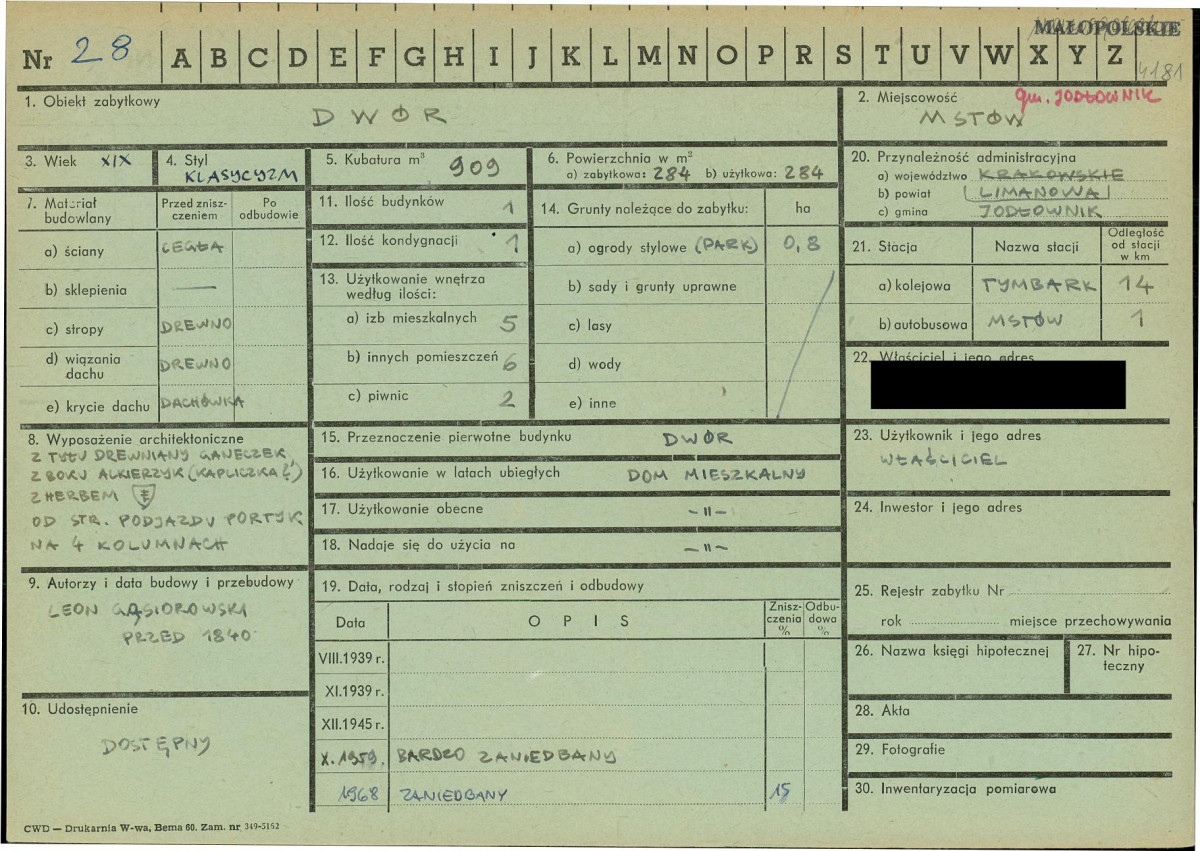 MAŁOPOLSKIE
Nr 28 A B C D E F G H I J K L M N O P R S T U V W X Y Z
4181
1. Obiekt zabytkowy
DWÓR
2. Miejscowość
gm. JODŁOWNIK
MSTÓW
3. Wiek XIX
4. Styl
KLASYCYZM
5. Kubatura m³ 909
6. Powierzchnia w m²
a) zabytkowa: 284 b) użytkowa: 284
7. Materiał budowlany
Przed zniszczeniem
Po odbudowie
a) ściany CEGŁA
b) sklepienia —
c) stropy DREWNO
d) wiązania dachu DREWNO
e) krycie dachu DACHÓWKA
8. Wyposażenie architektoniczne
Z TYŁU DREWNIANY GANECZEK,
Z BOKU ALKIERZYK (KAPLICZKA?)
Z HERBEM
OD STR. PODJAZDU PORTYK
NA 4 KOLUMNACH
9. Autorzy i data budowy i przebudowy
LEON GĄSIOROWSKI
PRZED 1840
10. Udostępnienie
DOSTĘPNY
11. Ilość budynków 1
12. Ilość kondygnacji 1
13. Użytkowanie wnętrza
według ilości:
a) izb mieszkalnych 5
b) innych pomieszczeń 6
c) piwnic 2
14. Grunty należące do zabytku: ha
a) ogrody stylowe (PARK) 0,8
b) sady i grunty uprawne
c) lasy
d) wody
e) inne
15. Przeznaczenie pierwotne budynku DWÓR
16. Użytkowanie w latach ubiegłych DOM MIESZKALNY
17. Użytkowanie obecne –"–
18. Nadaje się do użycia na –"–
19. Data, rodzaj i stopień zniszczeń i odbudowy
Data
OPIS
Zniszczenia %
Odbudowa %
VIII.1939 r.
XI.1939 r.
XII.1945 r.
X.1959. BARDZO ZANIEDBANY
1968 ZANIEDBANY 15
20. Przynależność administracyjna
a) województwo KRAKOWSKIE
b) powiat LIMANOWA
c) gmina JODŁOWNIK
21. Stacja
Nazwa stacji
Odległość od stacji w km
a) kolejowa TYMBARK 14
b) autobusowa MSTÓW 1
22. Właściciel i jego adres
23. Użytkownik i jego adres
WŁAŚCICIEL
24. Inwestor i jego adres
25. Rejestr zabytku Nr
rok miejsce przechowywania
26. Nazwa księgi hipotecznej
27. Nr hipoteczny
28. Akta
29. Fotografie
30. Inwentaryzacja pomiarowa
CWD — Drukarnia W-wa, Bema 60. Zam. nr 349-5162